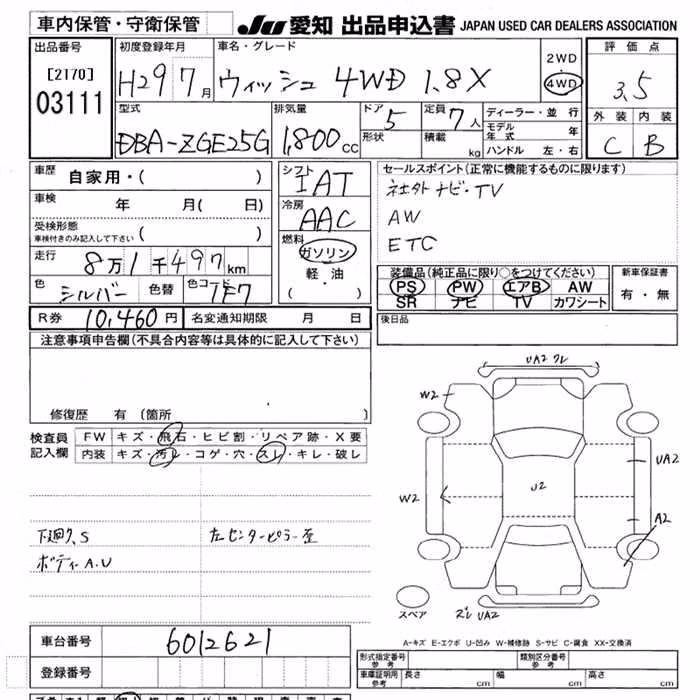 車内保管・守衛保管
JU 愛知 出品申込書 JAPAN USED CAR DEALERS ASSOCIATION
出品番号
[2170]
03111
初度登録年月
H29 7月
車名・グレード
ウィッシュ 4WD 1.8X
2WD
・
4WD
評価点
3.5
外装 内装
C B
型式
DBA-ZGE25G
排気量
1,800cc
ドア 5
形状
定員 7人
積載 kg
ディーラー・並行
モデル年式 年
ハンドル 左・右
車歴 自家用・( )
車検 年 月( 日)
受検形態
車検付きのみ記入して下さい ( )
走行 8万1千497km
色 シルバー 色替 色コード 1F7
シフト
IAT
冷房
AAC
燃料
ガソリン
軽・油
( ・ )
セールスポイント(正常に機能するものに限ります)
社外ナビ・TV
AW
ETC
装備品(純正品に限り○をつけてください)
PS PW エアB AW
SR ナビ TV カワシート
新車保証書
有・無
R券 10,460円 名変通知期限 月 日
後日品
注意事項申告欄(不具合内容等は具体的に記入して下さい)
修復歴 有(箇所 )
検査員記入欄
FW キズ・飛石・ヒビ割・リペア跡・X要
内装 キズ・汚レ・コゲ・穴・スレ・キレ・破レ
下廻り、S
ボディーA.U
左センターピラー歪
UA2 ワレ
W2
UA2
W2
U2
A2
スペア
ズレ UA2
A-キズ E-エクボ U-凹み W-補修跡 S-サビ C-腐食 XX-交換済
車台番号 6012621
登録番号
形式指定番号 参考
類別区分番号 参考
車庫証明用 参考 長さ cm 幅 cm 高さ cm